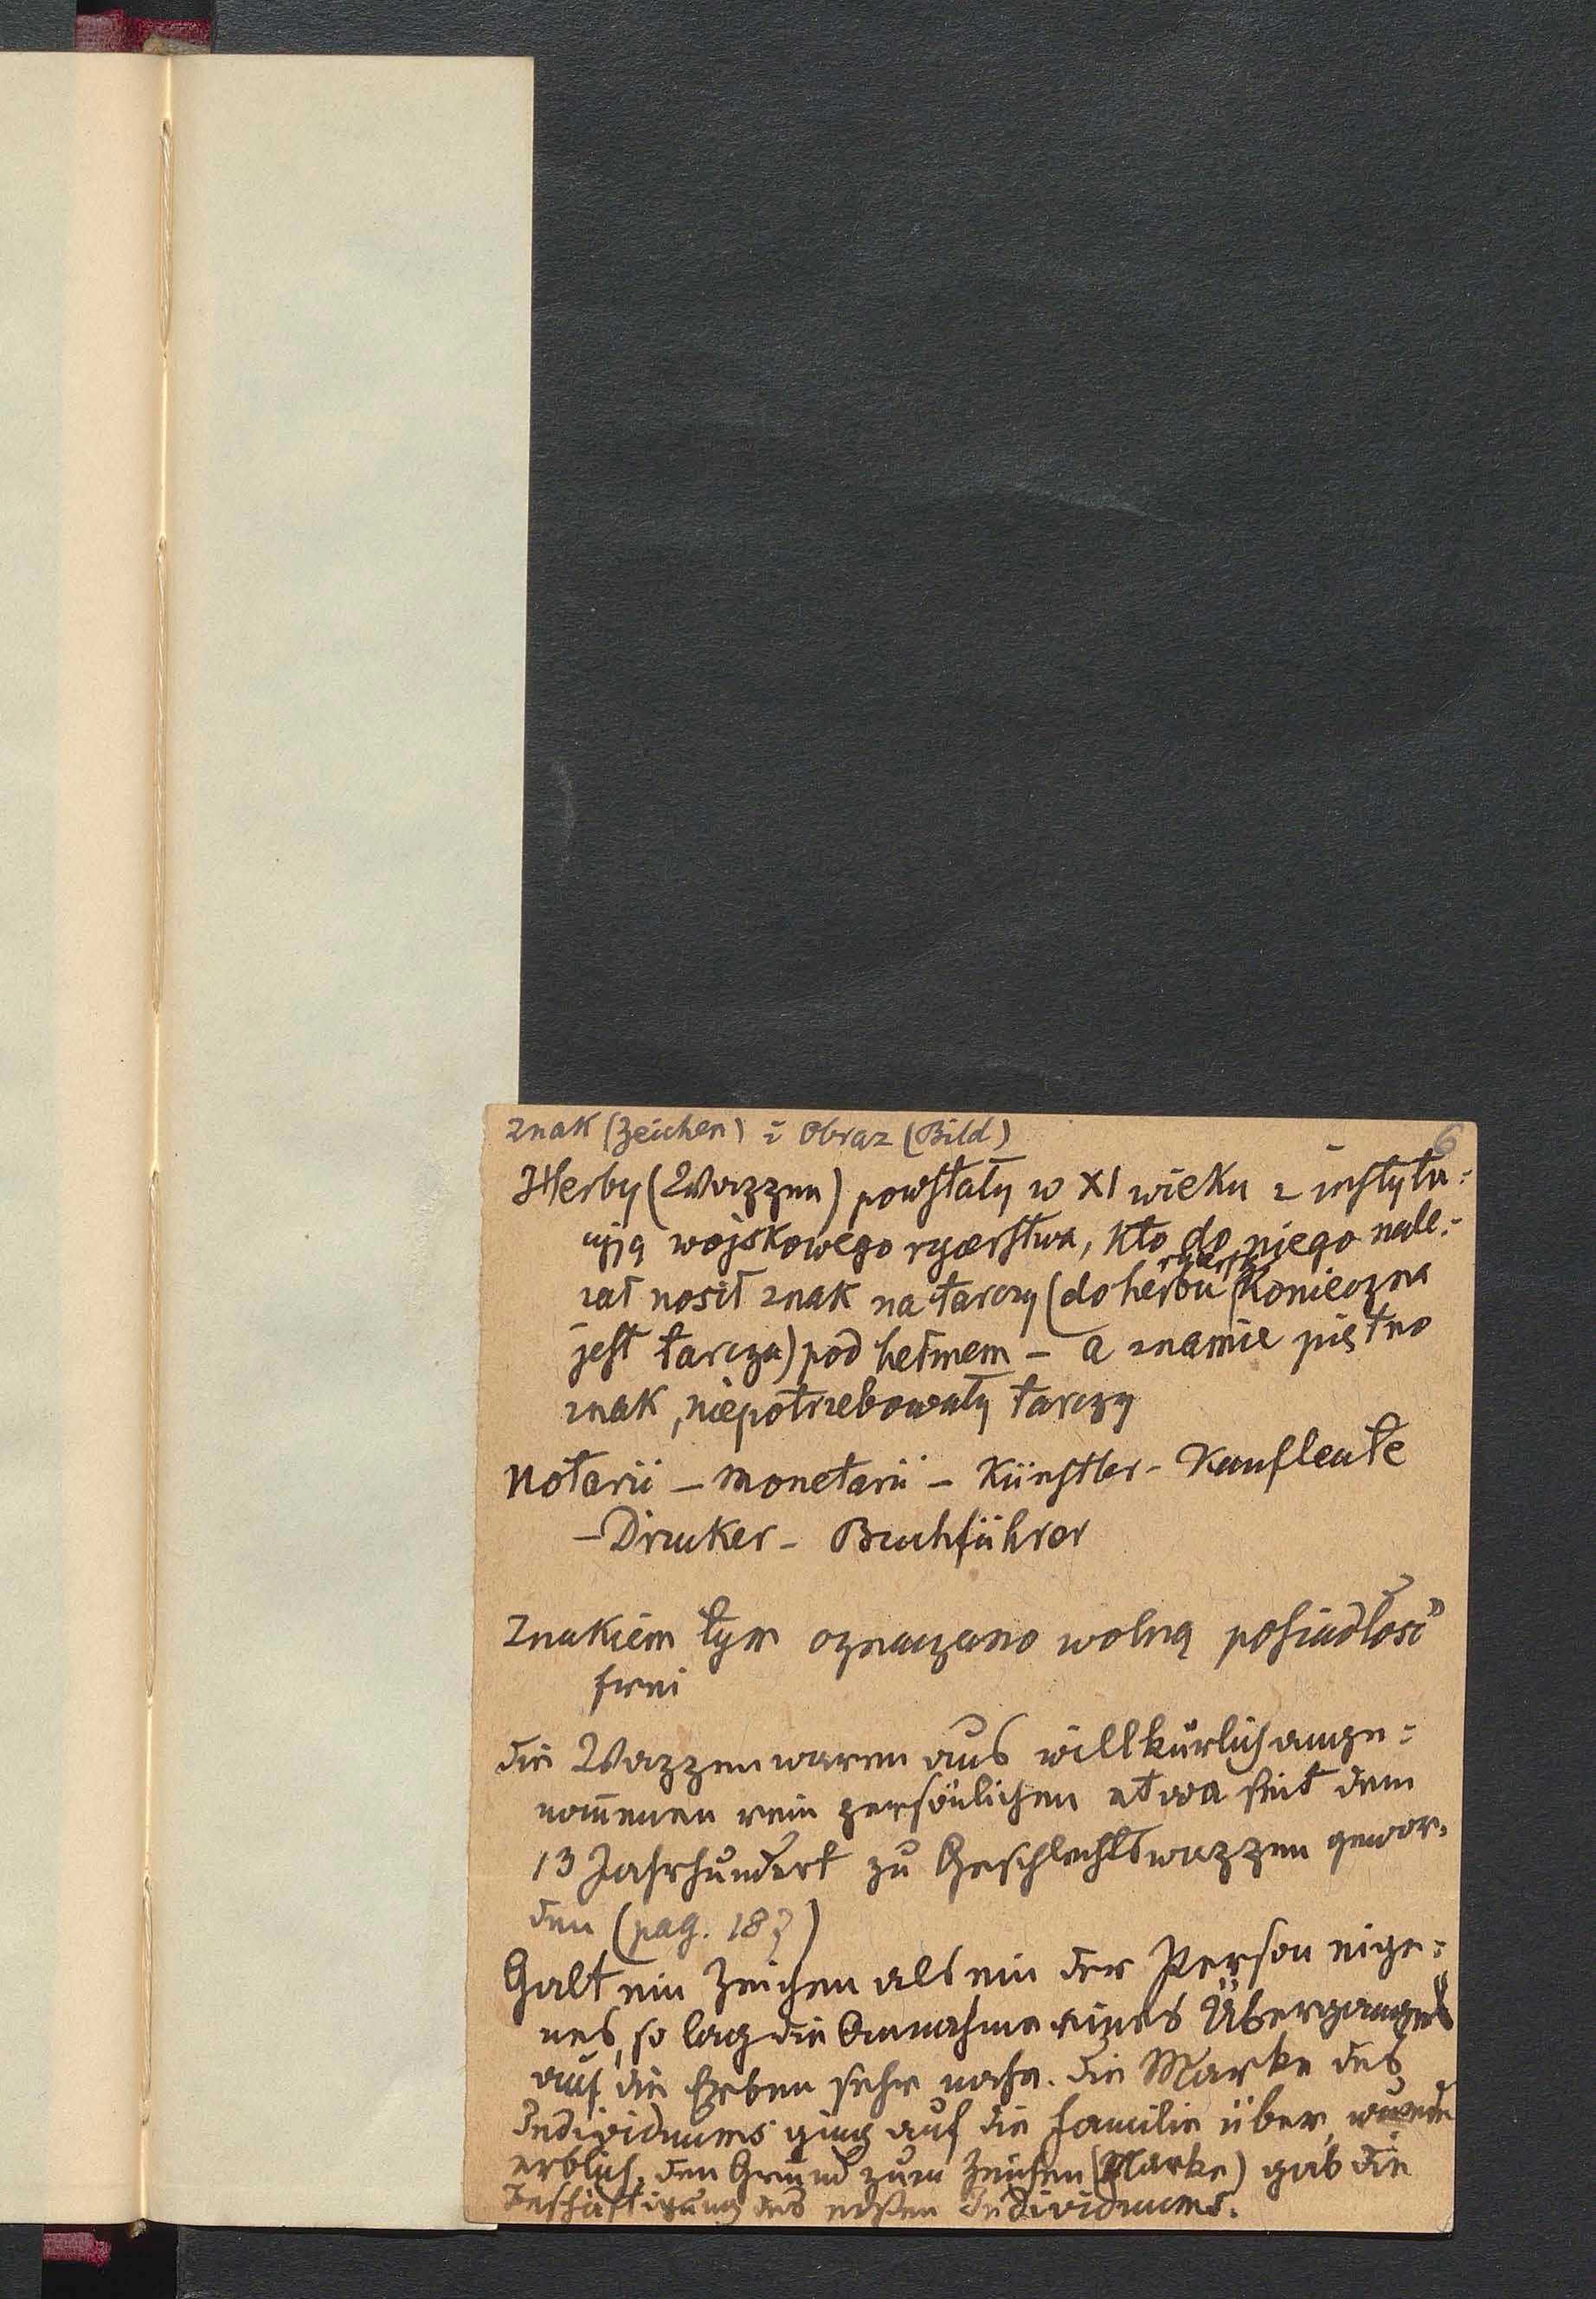 Znak (Zeichen) i Obraz (Bild)
6
Herby (Wappen) powstały w XI wieku z instytu=
cyją wojskowego rycerstwa, kto do niego nale=
żał nosił znak na tarczy (do herbu rycersk. konieczna
jest tarcza) pod hełmem – a znamie piętno
znak, niepotrzebowały tarczy
Notarii – Monetarii – Künstler – Kaufleute
– Drucker – Buchführer
Znakiem tym oznaczano wolną posiadłość
frei
die Wappen waren aus willkürlich ange=
nom̄enen rein persönlichen etwa seit dem
13 Jahrhundert zu Geschlechtswappen gewor=
den (pag. 187)
Galt ein Zeichen als ein der Person eige=
nes, so lag die Annahme eines Überganges
auf die Erben sehr nahe. Die Marke des
Individuums ging auf die Familie über, wurde
erblich. Den Grund zum Zeichen (Marke) gab die
Beschäftigung des ersten Individuums.